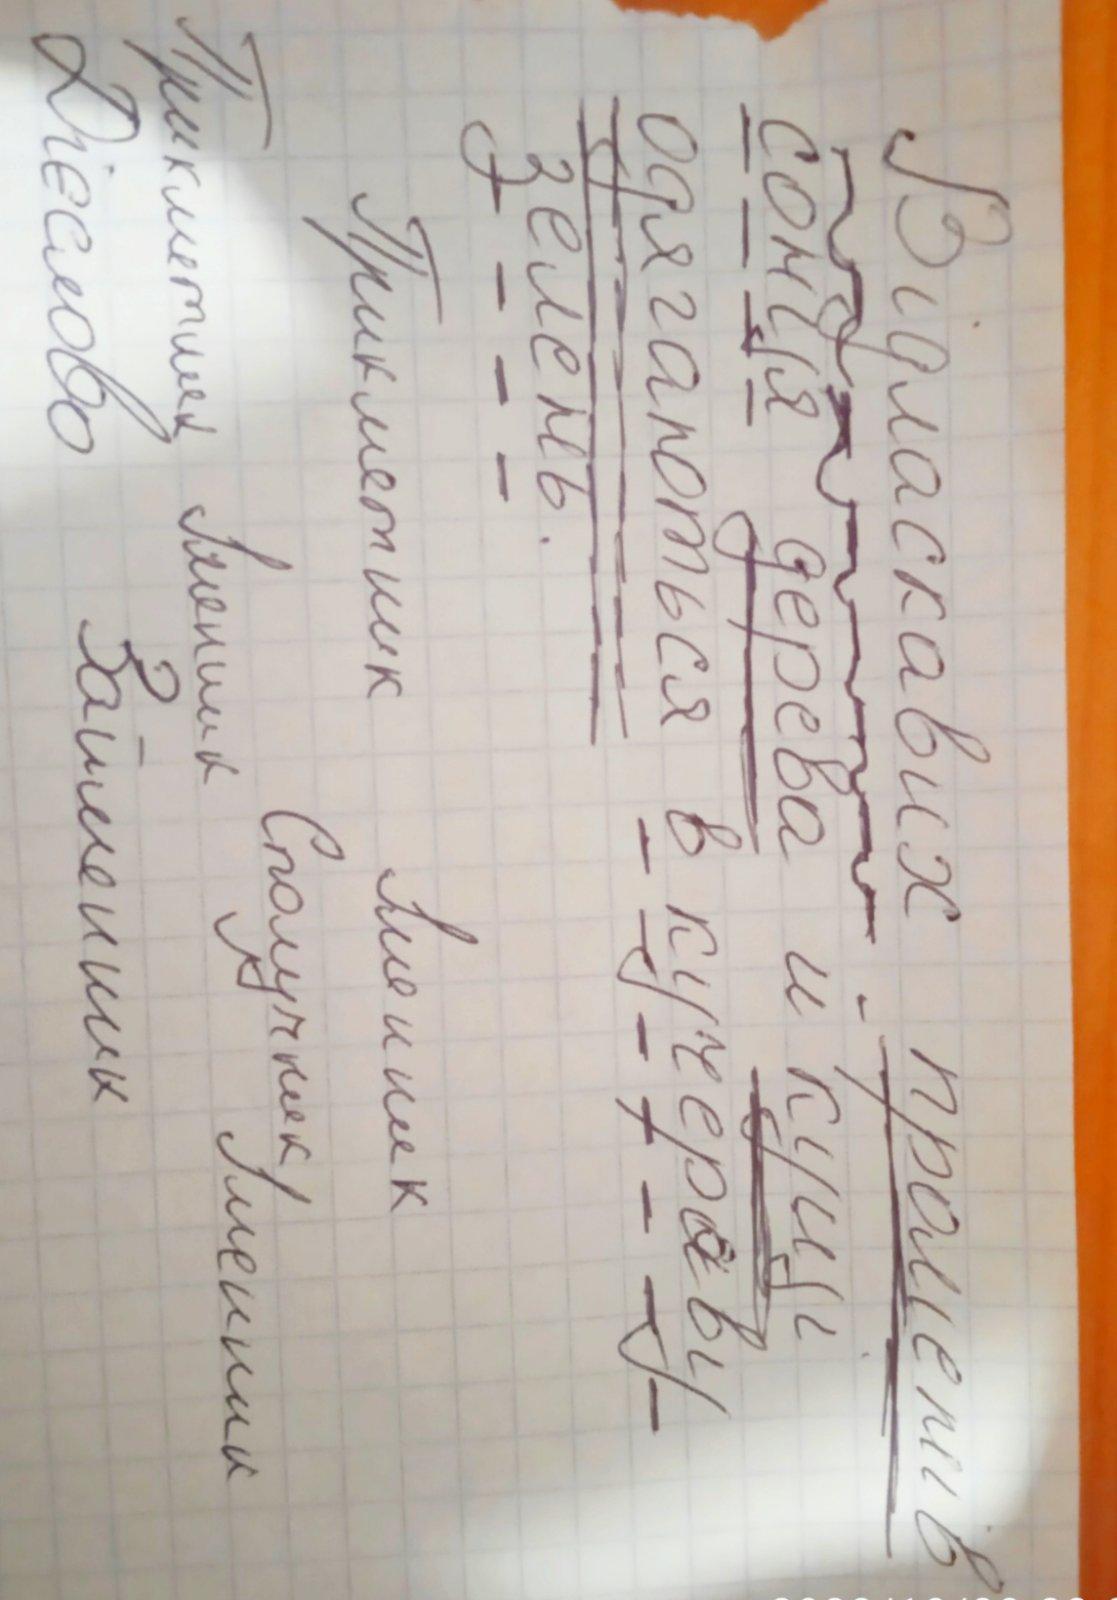 Від ласкавих променів
сонця дерева и кущі
одягаються в кучеряву
зелень.
Прикметник Іменик
Сполучник Іменник
Прикметник Іменик
Дієслово Займенник